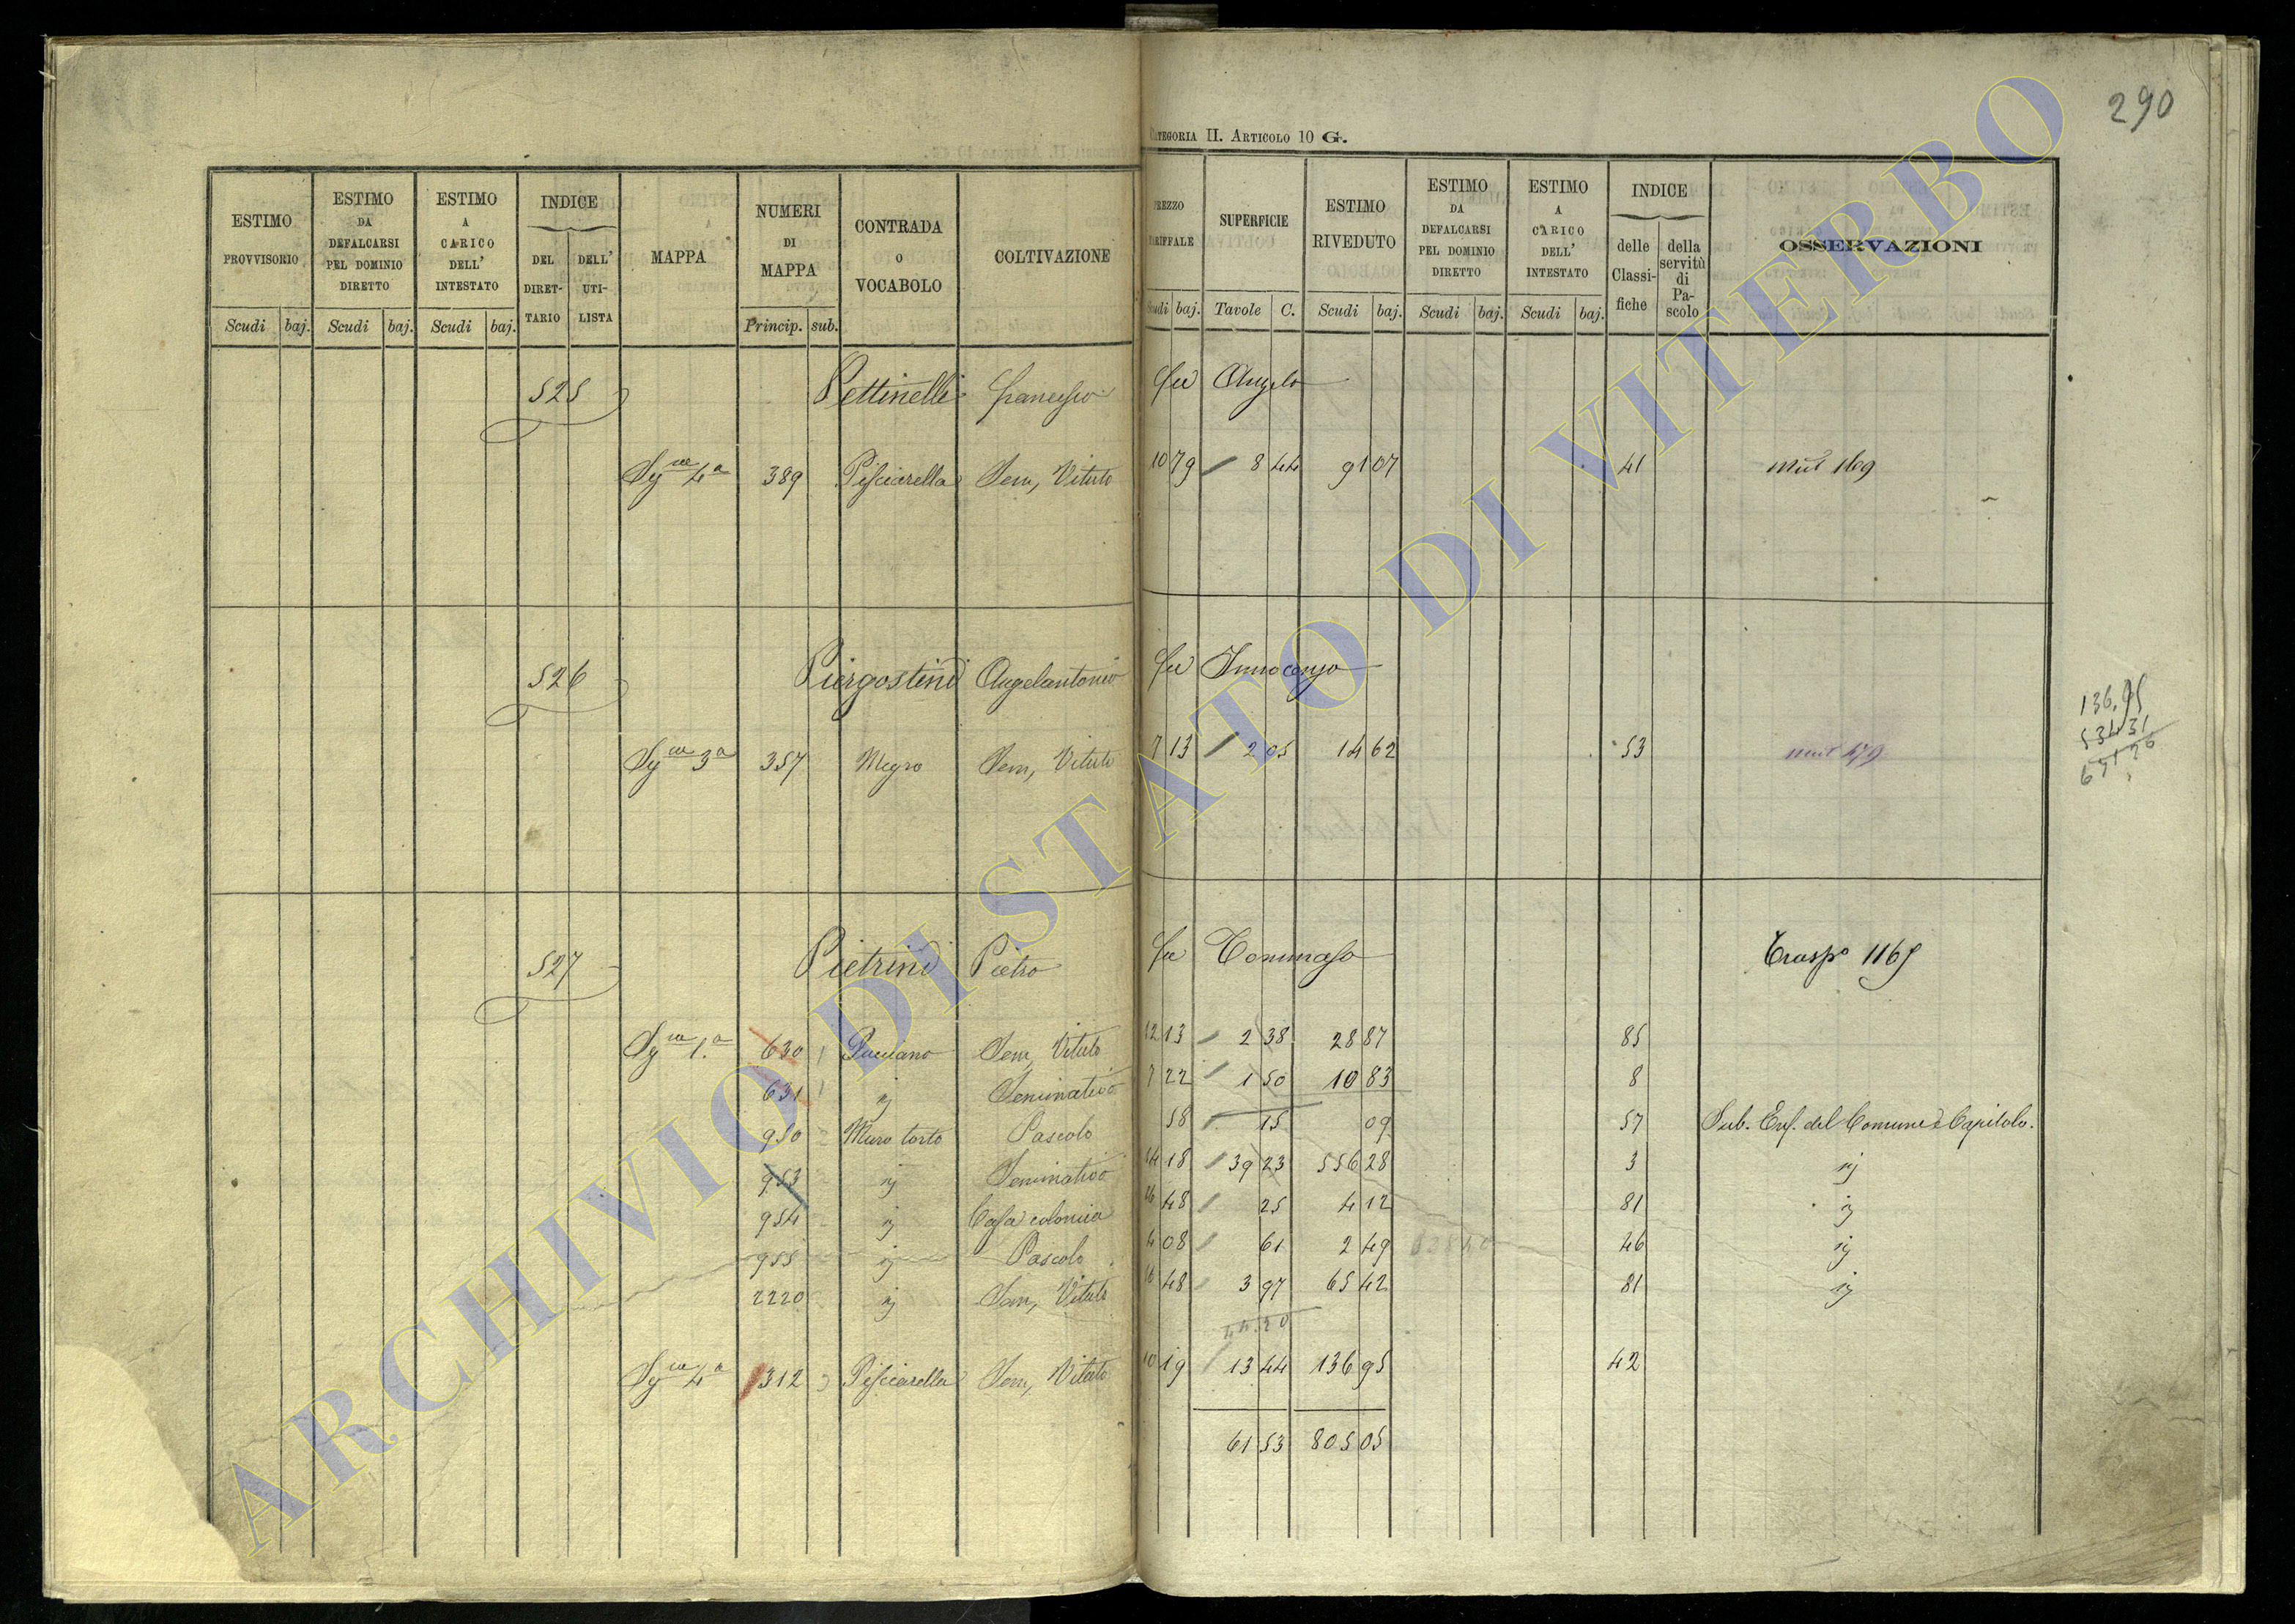 290
CATEGORIA II. ARTICOLO 10 G.
ESTIMO PROVVISORIO Scudi baj.
ESTIMO DA DEFALCARSI PEL DOMINIO DIRETTO Scudi baj.
ESTIMO A CARICO DELL' INTESTATO Scudi baj.
INDICE DEL DIRET-TARIO DELL' UTI-LISTA
MAPPA
NUMERI DI MAPPA Princip. sub.
CONTRADA O VOCABOLO
COLTIVAZIONE
PREZZO TARIFFALE Scudi baj.
SUPERFICIE Tavole C.
ESTIMO RIVEDUTO Scudi baj.
ESTIMO DA DEFALCARSI PEL DOMINIO DIRETTO Scudi baj.
ESTIMO A CARICO DELL' INTESTATO Scudi baj.
INDICE delle Classi-fiche della servitù di Pa-scolo
OSSERVAZIONI
525 Pettinelli Francesco fu Angelo
Sy 4a 389 Pisciarella Sem, Vitato 10 79 8 44 91 07 41 mut 169
526 Piergostini Angelantonio fu Innocenzo
Sy 3a 357 Megro Sem, Vitato 7 13 2 05 14 62 53 mut 479
136.95
534 31
527 Pietrini Pietro fu Tommaso Trasp 1165
Sy 1a 630 Sem, Vitato 12 13 2 38 28 87 85
631 Seminativo 7 22 1 50 10 83 8
950 Muro torto Pascolo 58 15 09 57 Sub. Enf. del Comune e Capitolo.
953 Seminativo 14 18 39 23 556 28 3
954 Casa colonica 16 48 25 4 12 81
955 Pascolo 4 08 61 2 49 46
2220 Sem, Vitato 16 48 3 97 65 42 81
44.20
Sy 4a 312 Pisciarella Sem, Vitato 10 19 13 44 136 95 42
61 53 805 05
ARCHIVIO DI STATO DI VITERBO